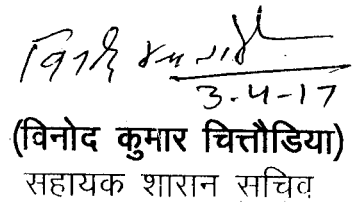 विनोद कुमार
3-4-17
(विनोद कुमार चित्तौडिया)
सहायक शासन सचिव